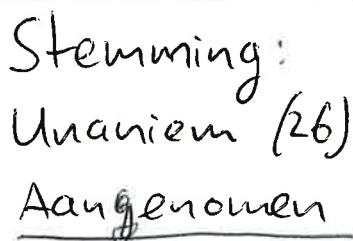 Stemming:
Unaniem (26)
Aangenomen